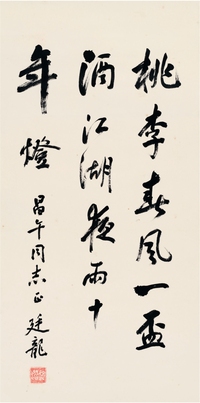 桃李春风一盃
酒江湖夜雨十
年燈
昌午同志正 廷龍